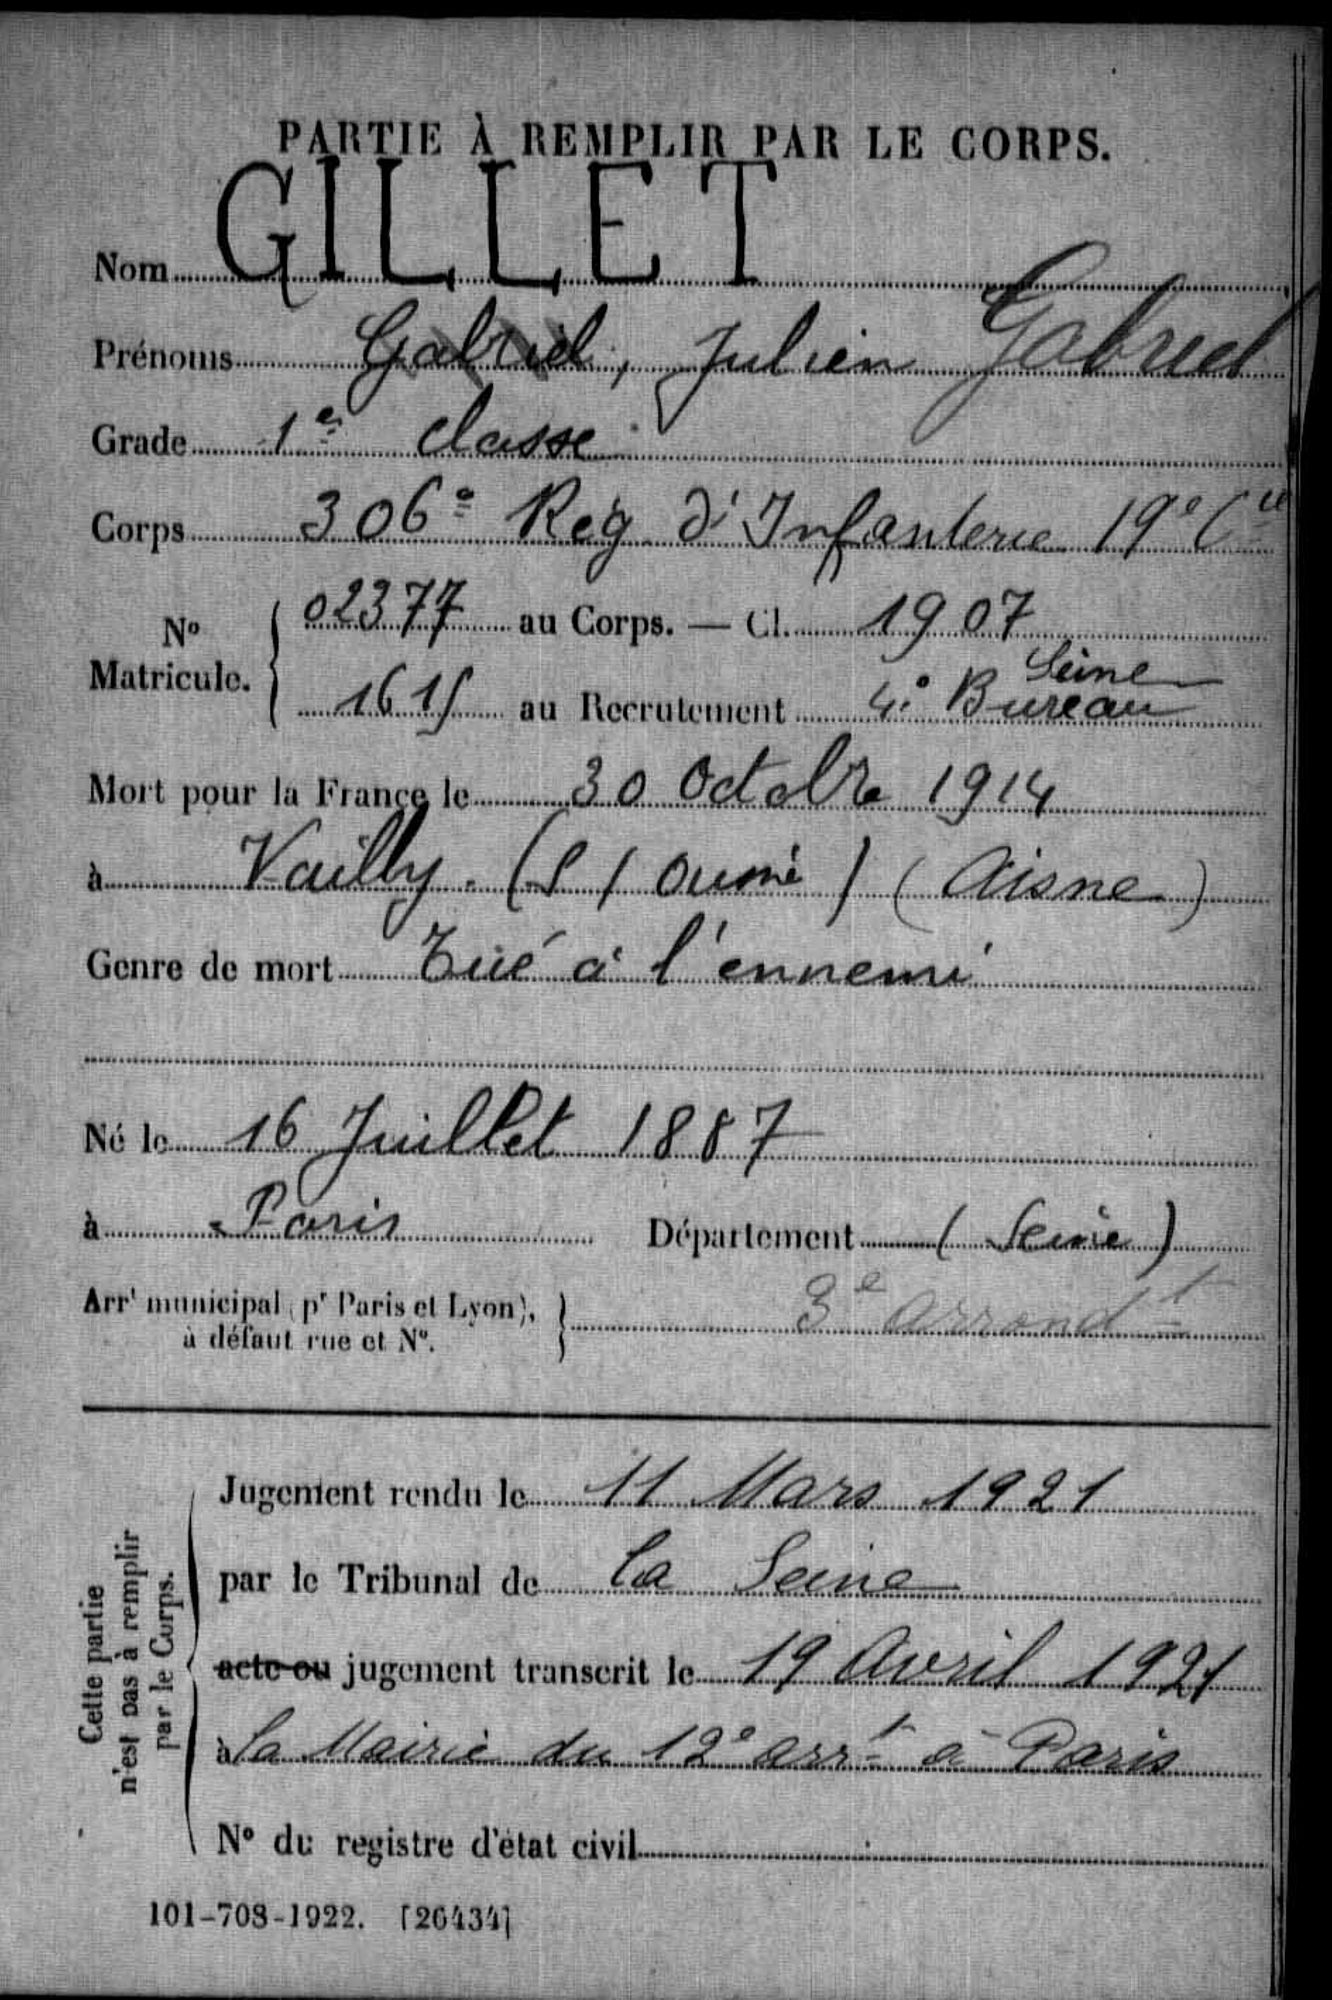 PARTIE À REMPLIR PAR LE CORPS.
Nom GILLET
Prénoms Gabriel, Julien Gabriel
Grade 1e classe
Corps 306e Rég d'Infanterie 19e Cie
No Matricule. 02377 au Corps. — Cl. 1907
1615 au Recrutement Seine 4e Bureau
Mort pour la France le 30 Octobre 1914
à Vailly (Aisne)
Genre de mort Tué à l'ennemi
Né le 16 Juillet 1887
à Paris Département (Seine)
Arrt municipal (pr Paris et Lyon), à défaut rue et No. 3e arrondt
Cette partie n'est pas à remplir par le Corps.
Jugement rendu le 11 Mars 1921
par le Tribunal de la Seine
acte ou jugement transcrit le 19 Avril 1921
à la Mairie du 12e arrt à Paris
No du registre d'état civil
101-708-1922. [26434]